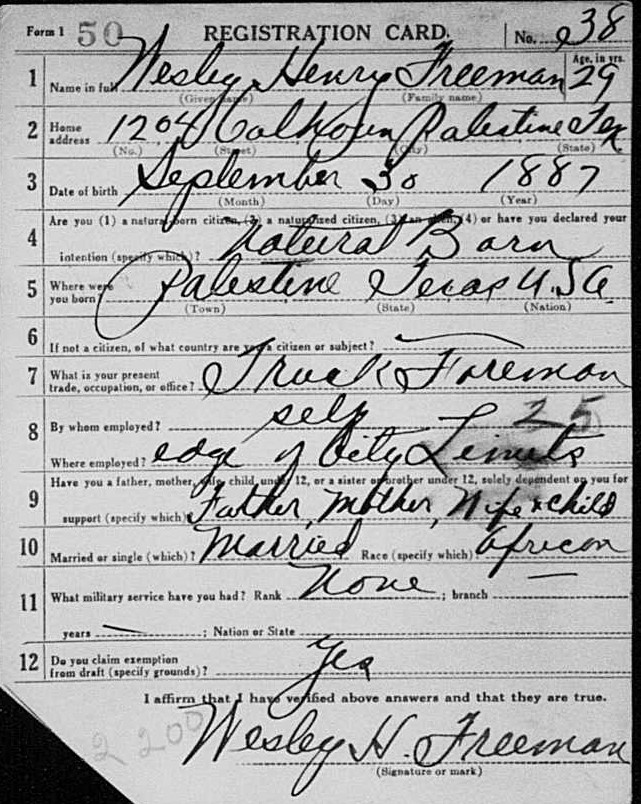 Form 1 50 REGISTRATION CARD. No. 38
1 Name in full Wesley Henry Freeman Age, in yrs. 29
(Given name) (Family name)
2 Home address 1204 Calhoun Palestine Tex
(No.) (Street) (City) (State)
3 Date of birth September 30 1887
(Month) (Day) (Year)
4 Are you (1) a natural-born citizen, (2) a naturalized citizen, (3) an alien, (4) or have you declared your
intention (specify which)? Natural Born
5 Where were you born? Palestine Texas U.S.A.
(Town) (State) (Nation)
6 If not a citizen, of what country are you a citizen or subject?
7 What is your present trade, occupation, or office? Truck Foreman
8 By whom employed? self 25
Where employed? edge of City Limits
9 Have you a father, mother, wife, child under 12, or a sister or brother under 12, solely dependent on you for
support (specify which)? Father, Mother, Wife & Child
10 Married or single (which)? Married Race (specify which) African
11 What military service have you had? Rank None ; branch —
years — ; Nation or State
12 Do you claim exemption from draft (specify grounds)? Yes
I affirm that I have verified above answers and that they are true.
2 200 Wesley H. Freeman
(Signature or mark)